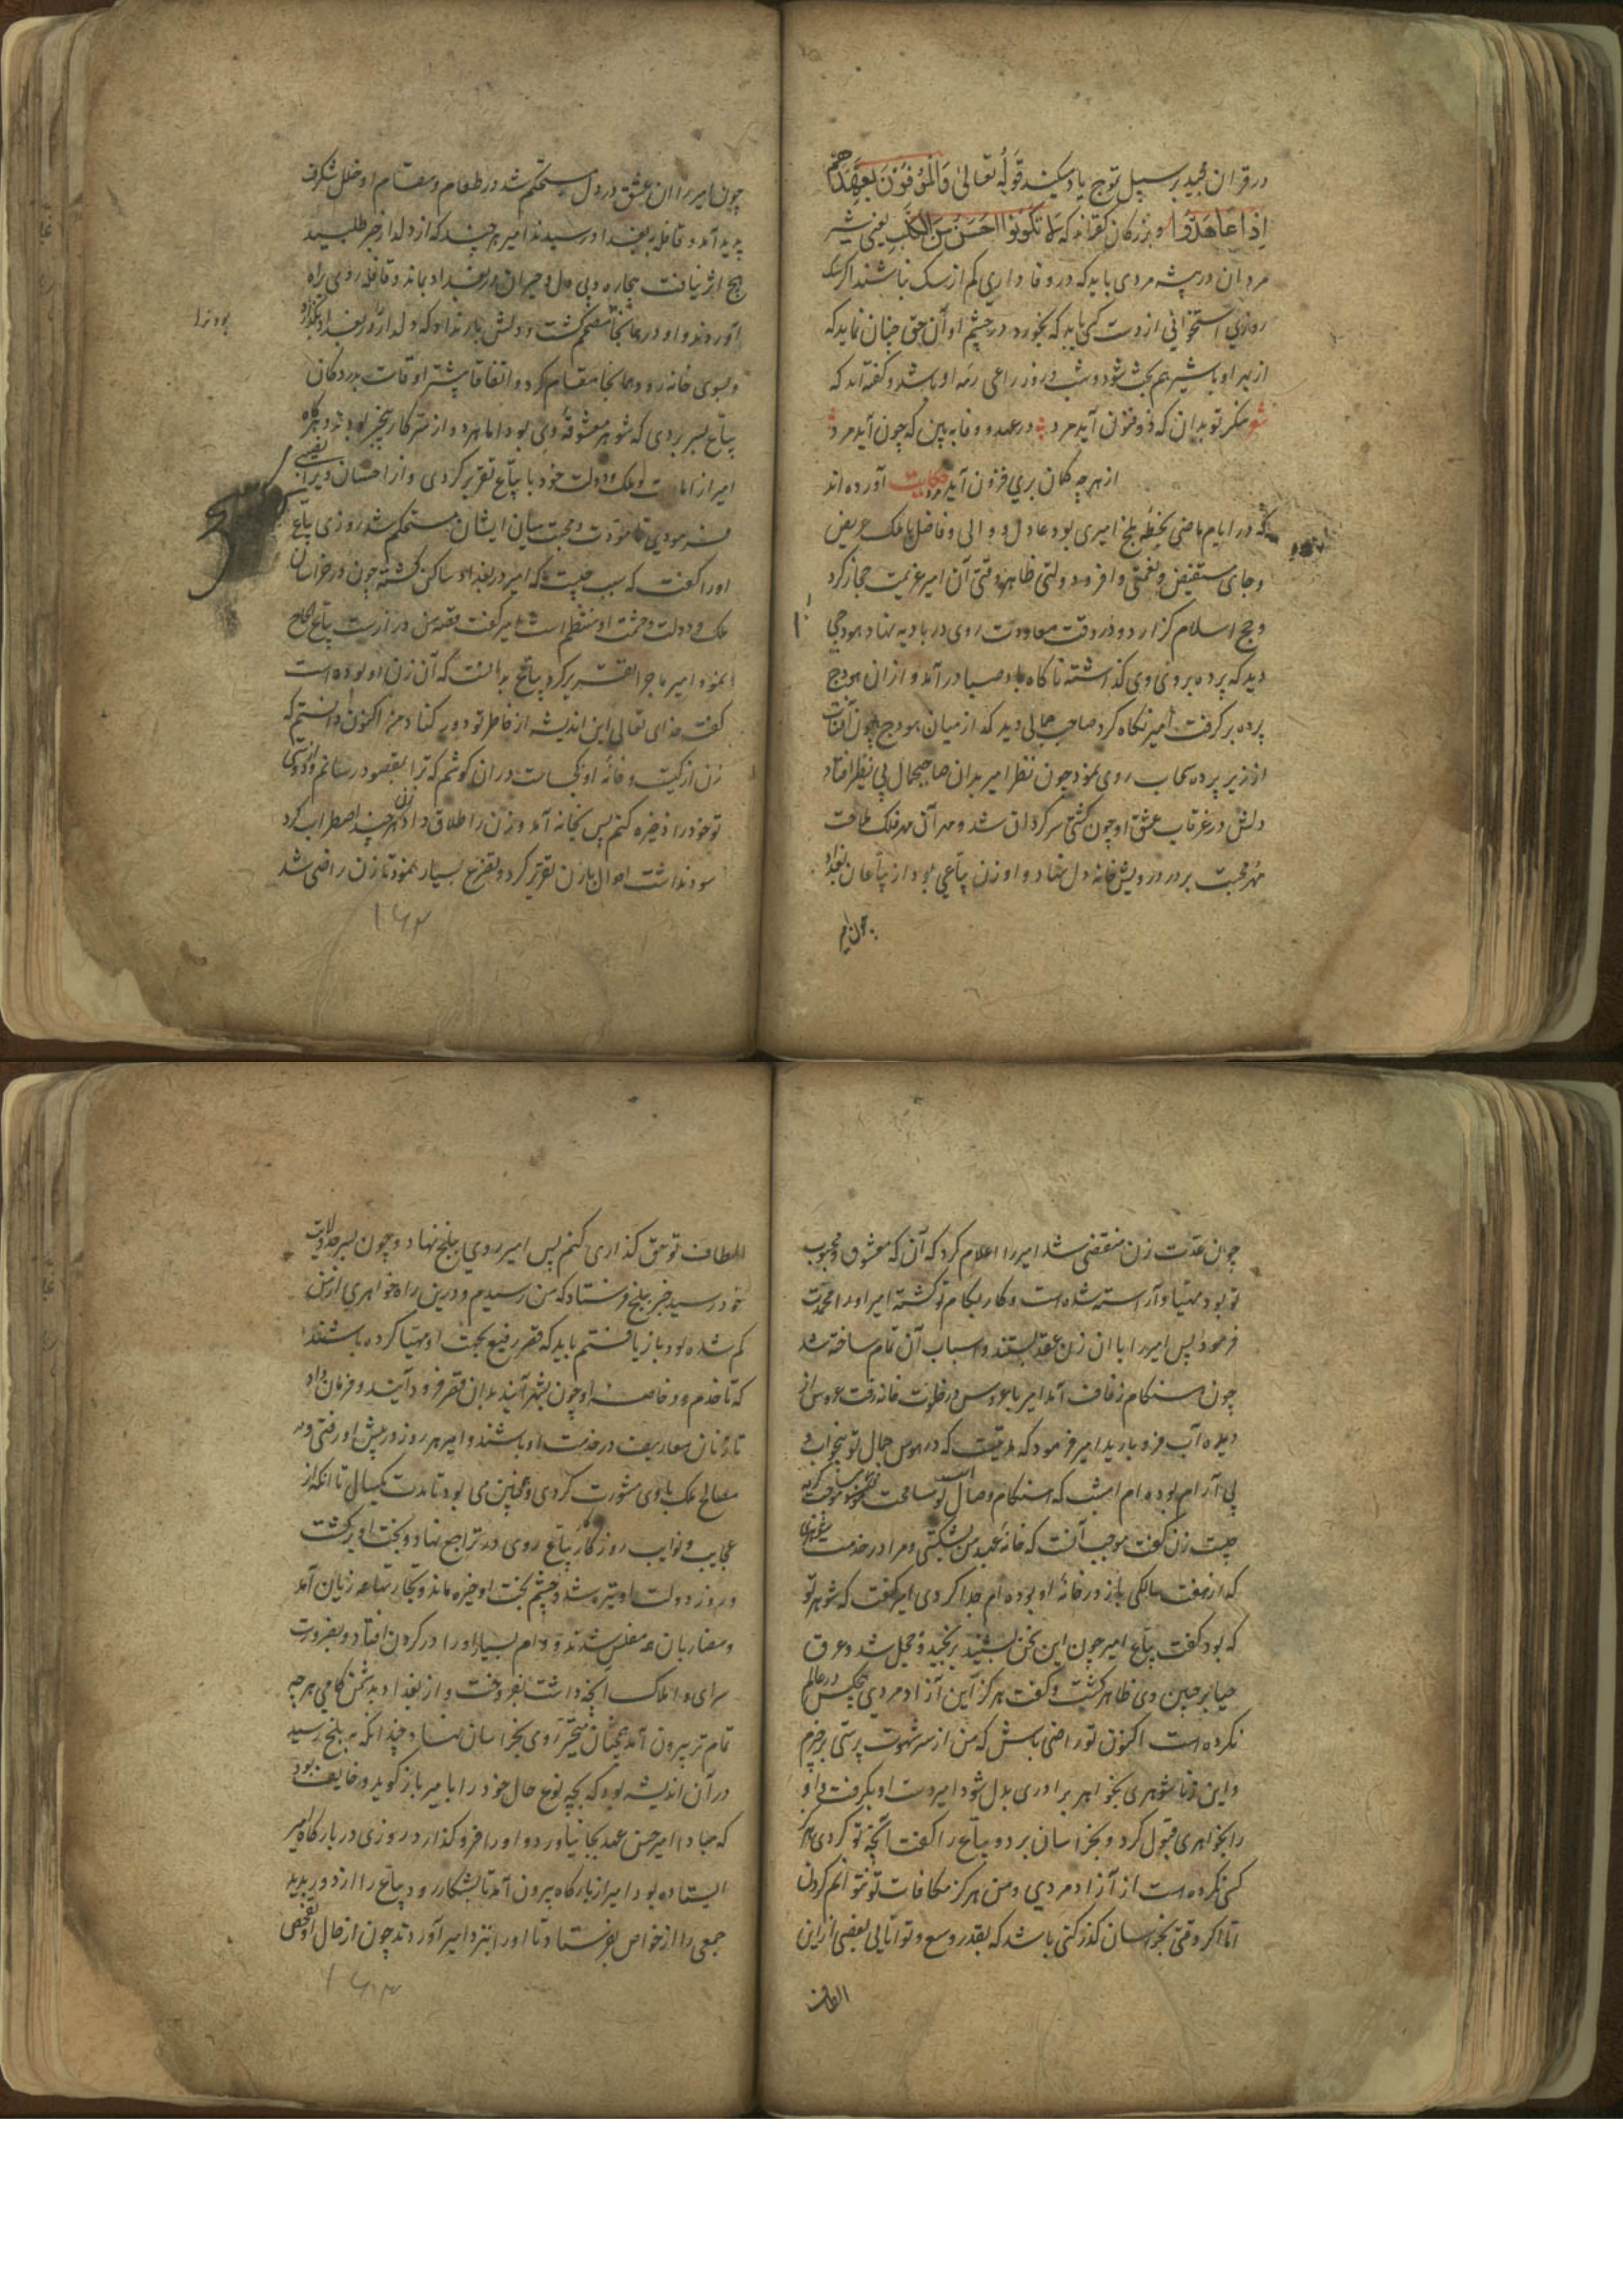 در قران مجید بر سبیل توج یاد میکند قوله تعالی وَالْمُوفُونَ بِعَهْدِهِمْ
اِذَا عَاهَدُوا و بزرکان کفته‌اند که لا تَکُونُوا اَخَسَّ مِنَ الکَلْبِ یعنی شیر
مردان در پیشه مردی باید که در وفا داری کم از سک نباشند اکر سک
روزی استخوانی از دست کسی یابد که بخورد در چشم او آن حق چنان نماید که
از بهر او با شیر هم بحث شود و شب و روز راعی رمه او باشد و کفته‌اند که
شو منکر تو بدان که ذو فنون آید مرد در عهد و وفا به بین که چون آید مرد
از هر چه کمان بری فزون آید مرد حکایت آورده اند
که در ایام ماضی بخطه بلخ امیری بود عادل و والی و فاضل با ملک عریض
و جاهی مستفیض و نعمتی وافر و دولتی ظاهر وقتی آن امیر عزیمت حجاز کرد
و حج اسلام کزارد و در وقت معاودت روی در بادیه نهاد هودجی
دید که پرده بر وی فروکذاشته ناکاه باد صبا در آمد و از ان هودج
پرده بر کرفت امیر نکاه کرد صاحب جمالی دید که از میان هودج چون آفتاب
از زیر پرده سحاب روی نمود چون نظر امیر بدان صاحبجمال بی نظیر افتاد
دلش در غرقاب عشق او چون کشتی سرکردان شد و مهر آن مه فلک طاقت
مهر محبت بر در درویش خانه دل نهاد و او زن بیاعی بود از بیاعان بغداد
چون امیر
چون امیر را ان عشق در دل مستحکم شد در طعام و مقام او خلل شکرف
پدید آمد و قافله به بغداد رسیدند امیر هر چند که از دلدار خبر طلبید
هیچ اثر نیافت بیچاره و بی دل و حیران در بغداد بماند و قافله روی براه
آوردند و او در همانجا مقیم کشت و دلش بار نداد که دلدار را در بغداد بکذارد
و بسوی خانه رود همانجا مقام کرد و اتفاقا بیشتر اوقات بر در دکان
بیاع بسر بردی که شوهر معشوقه وی بود اما هر دو از سر کار بیخبر بودند و هر کاه
امیر از امارت و ملک و دولت خود با بیاع تقریر کردی و از احسان ویرا نصیبی
فرمودی تا مودت و محبت میان ایشان مستحکم شد روزی بیاع
اورا کفت که سبب چیست که امیر در بغداد ساکن کشته چون در خراسان
ملک و دولت و حشمت او منتظم است امیر کفت قصه من دراز است بیاع الحاح
نمود امیر ماجرا تقریر کرد بیاع بدانست که آن زن او بوده است
کفت خدای تعالی این اندیشه از خاطر تو دور کناد من اکنون دانستم که
زن از کیست و خانه او کجاست در ان کوشم که ترا بمقصود رسانم و دوستی
تو خود را ذخیره کنم پس بخانه آمد و زن را طلاق داد زن هر چند اضطراب کرد
سود نداشت احوال با زن تقریر کرد و تضرع بسیار نمود تا زن راضی شد
۱۶۲
چون عدت زن منقضی شد امیر را اعلام کرد که آن که معشوق و محبوب
تو بود مهیا و آراسته شده است و کار بکام تو کشته امیر اورا محمدت
فرمود پس امیر را با ان زن عقد بستند و اسباب آن تمام ساخته شد
چون هنکام زفاف آمد امیر با عروس در خلوت خانه رفت عروس از
دیده آب فرو بارید امیر فرمود که مدتیست که در هوس جمال تو بیخواب و
بی آرام بوده‌ام امشب که هنکام وصال است موجب کریه
چیست زن کفت موجب آنست که خانه عهد من بشکستی و مرا در خدمت شوهری
که از هفت سالکی باز در خانه او بوده ام جدا کردی امیر کفت که شوهر تو
که بود کفت بیاع امیر چون این سخن بشنید برنجید و خجل شد و عرق
حیا بر جبین وی ظاهر کشت و کفت هرکز این آزاد مردی هیچکس در عالم
نکرده است اکنون تو راضی باش که من از سر شهوت پرستی برخیزم
و این زنا شوهری بخواهر برادری بدل شود امیر دست او بکرفت و او
را بخواهری قبول کرد و بخراسان برد و بیاع را کفت آنچه تو کردی هرکز
کسی نکرده است از آزاد مردی و من هرکز مکافات تو نتوانم کردن
اما اکر وقتی بخراسان کذر کنی باشد که بقدر وسع و توانایی بعضی از این
الطاف
الطاف تو حق کذاری کنم پس امیر روی ببلخ نهاد و چون بسر حد ولایت
خود رسید خبر ببلخ فرستاد که من رسیدم و درین راه خواهری از من
کم شده بود باز یافتم باید که قصر رفیع بجهت او مهیا کرده باشند
که تا خدم و خاصه او چون بشهر آیند بدان قصر فرود آیند و فرمان داد
تا زنان معاریف در خدمت او باشند و امیر هر روز در پیش او رفتی و در
مصالح ملک با وی مشورت کردی و همچنین می بود تا مدت یکسال تا انکه از
عجایب و نوایب روزکار بیاع روی در تراجع نهاد و بخت او برکشت
و روز دولت او تیره شد و چشم بخت او خیره ماند و تجارتها همه زیان آمد
و مضاربان همه مفلس شدند و وام بسیار اورا در کردن افتاد و بضرورت
سرای و املاک آنچه داشت بفروخت و از بغداد بدشمن کامی هر چه
تمام تر بیرون آمد همچنان متحیر روی بخراسان نهاد چندانکه به بلخ رسید
در آن اندیشه بود که بچه نوع حال خود را با امیر باز کوید و خایف بود
که مبادا امیر حسن عهد بجا نیاورد و اورا فرو کذارد روزی در بارکاه امیر
ایستاده بود امیر از بارکاه بیرون آمد تا بشکار رود بیاع را از دور بدید
جمعی را از خواص بفرستاد تا اورا بنزد امیر آوردند چون از حال او تفحص
۱۶۳